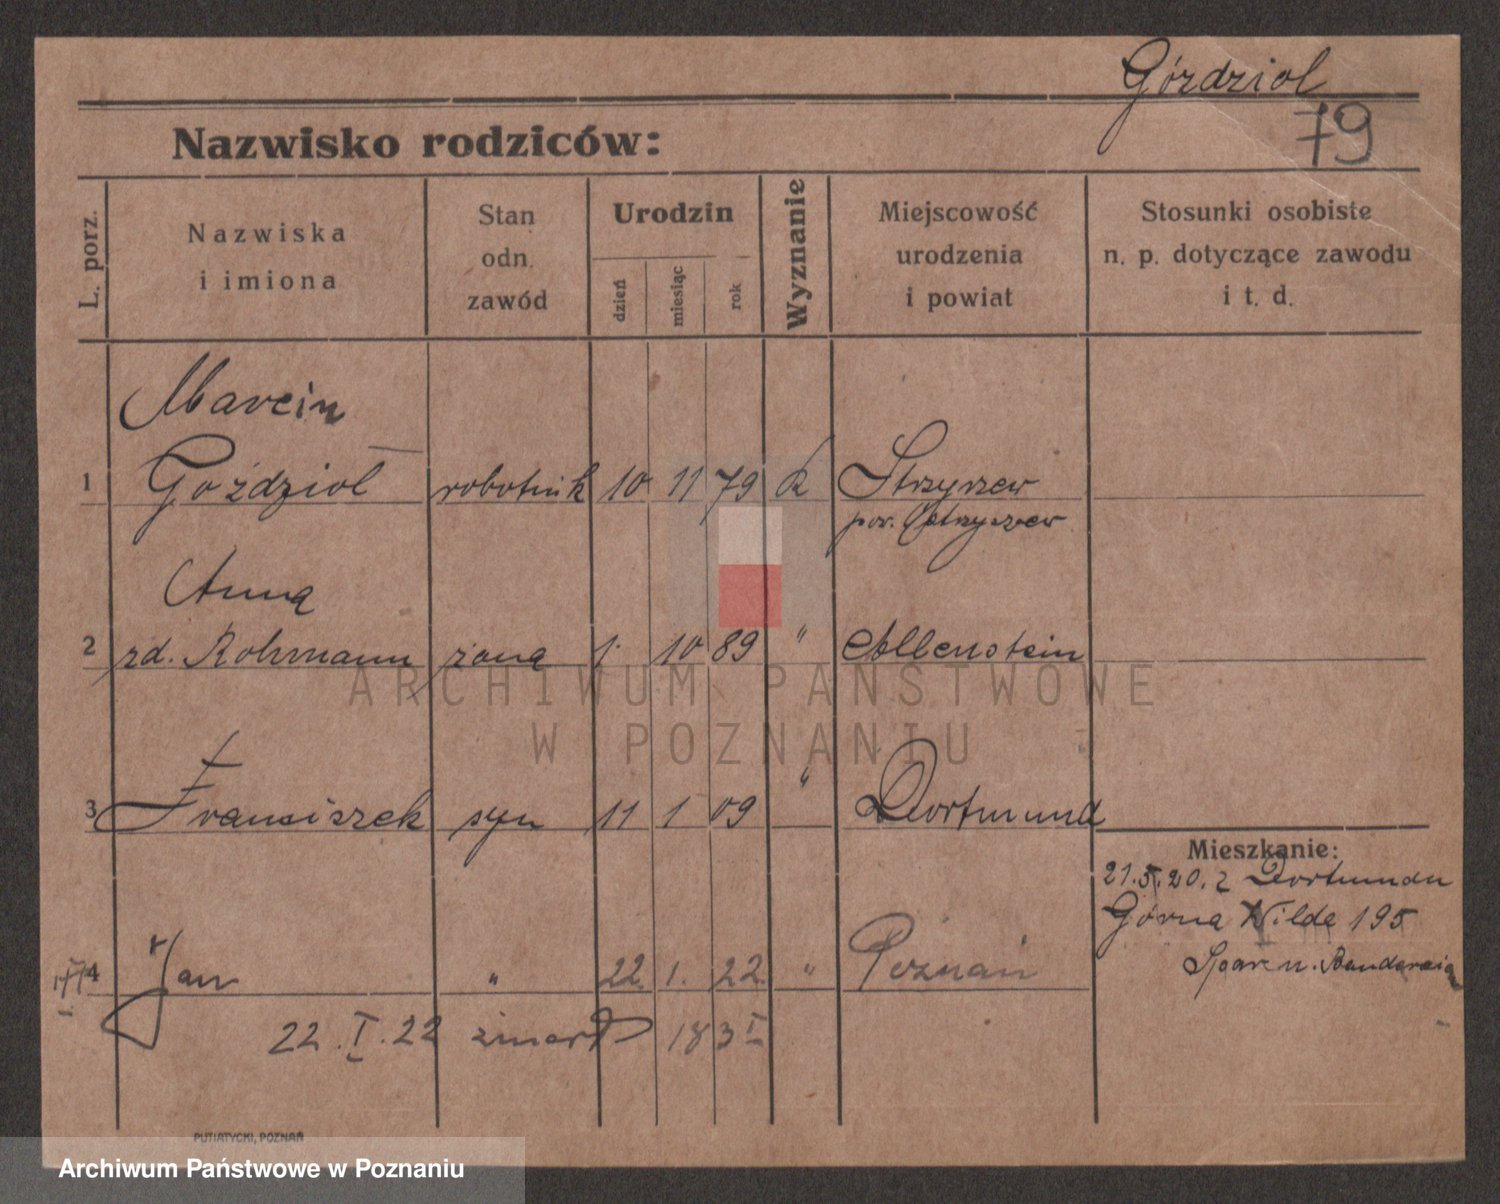 Góździol
79
Nazwisko rodziców:
L. porz.
Nazwiska
i imiona
Stan
odn.
zawód
Urodzin
dzień
miesiąc
rok
Wyznanie
Miejscowość
urodzenia
i powiat
Stosunki osobiste
n. p. dotyczące zawodu
i t. d.
Marcin
1 Goździol robotnik 10 11 79 K Strzyżew
pow.
Anna
2 rd. Rohmann żona 1. 10 89 " Allenstein
3 Franciszek syn 11 1 09 " Dortmund
Mieszkanie:
21.5.20. z Dortmundu
Górna Wilda 195
4 Jan " 22. 1. 22. " Poznań
22.I.22 zmarł
PUTIATYCKI, POZNAŃ
ARCHIWUM PAŃSTWOWE
W POZNANIU
Archiwum Państwowe w Poznaniu